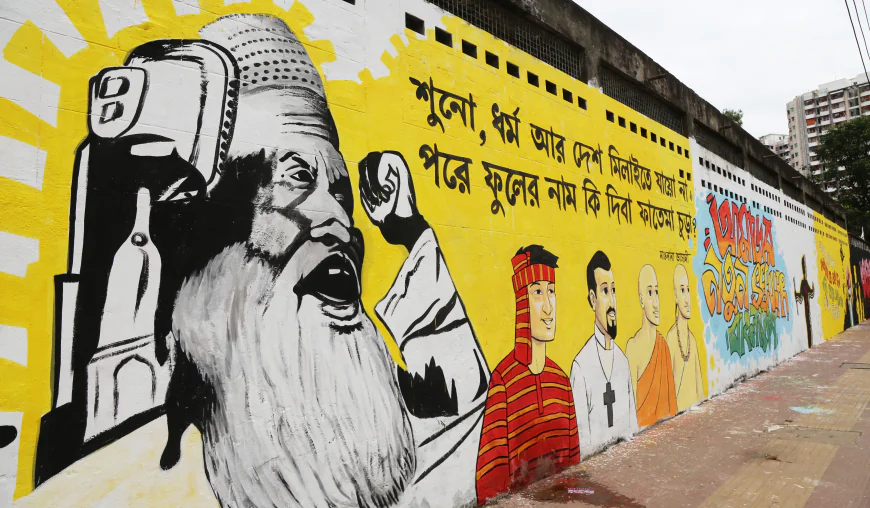 শুনো, ধর্ম আর দেশ মিলাইতে যায়ো না।
পরে ফুলের নাম কি দিবা ফাতেমা চূড়া?
মাওলানা ভাসানী
নতুন